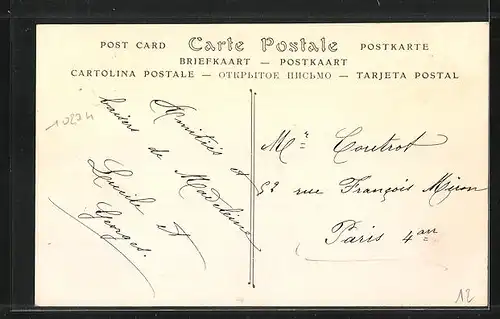 POST CARD Carte Postale POSTKARTE
BRIEFKAART — POSTKAART
CARTOLINA POSTALE — ОТКРЫТОЕ ПИСЬМО — TARJETA POSTAL
Amitiés et
baisers de Madeleine
Lucile et
Georges.
Mr Coutrot
rue François Miron
Paris 4
12